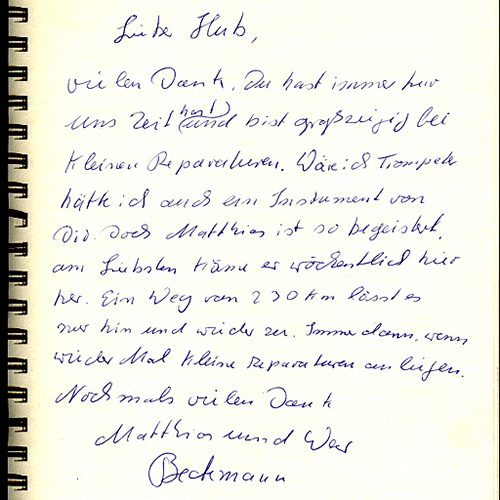 Lieber Hub,
vielen Dank. Du hast immer für
uns Zeit (hast) und bist großzügig bei
kleinen Reparaturen. Wäre ich Trompeter
hätte ich auch ein Instrument von
Dir. Doch Matthias ist so begeistert,
am Liebsten käme er wöchentlich hier
her. Ein Weg von 230 km lässt es
nur hin und wieder zu. Immer dann, wenn
wieder Mal kleine Reparaturen anliegen.
Nochmals vielen Dank
Matthias und
Beckmann